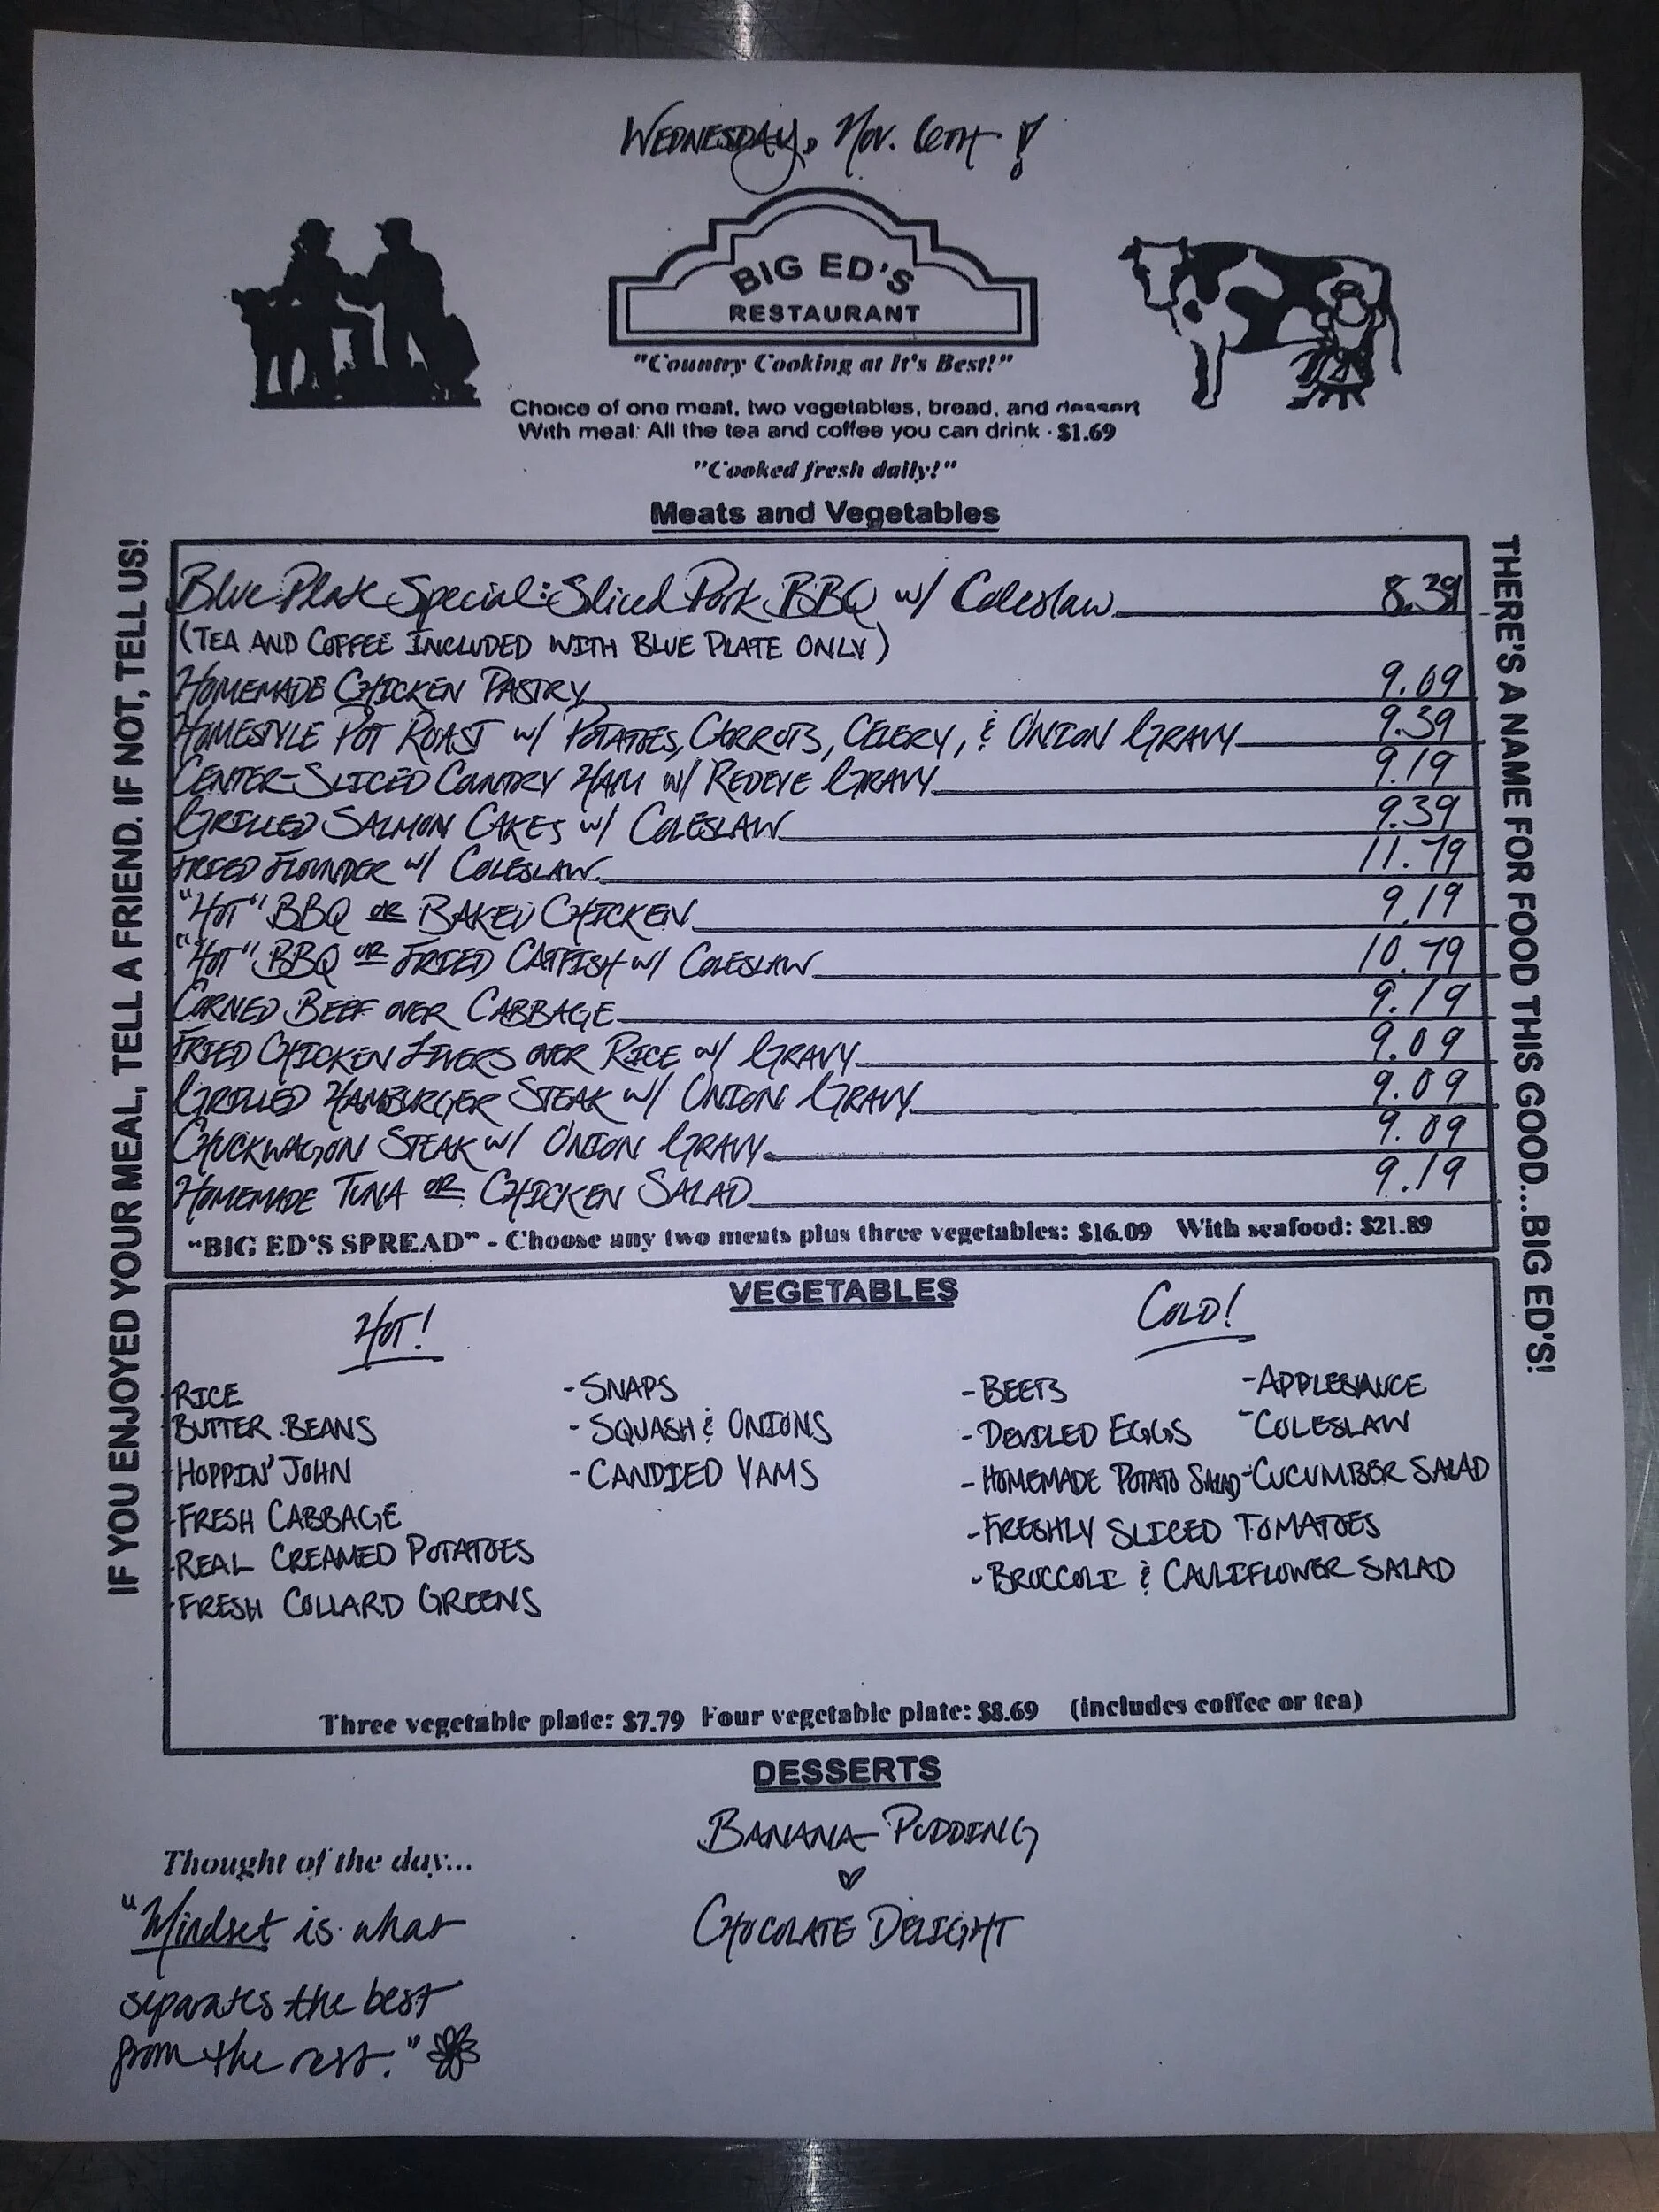 WEDNESDAY, NOV. 6TH!
BIG ED'S
RESTAURANT
"Country Cooking at It's Best!"
Choice of one meat, two vegetables, bread, and dessert
With meal: All the tea and coffee you can drink - $1.69
"Cooked fresh daily!"
Meats and Vegetables
Blue Plate Special: Sliced Pork BBQ w/ Coleslaw 8.39
(TEA AND COFFEE INCLUDED WITH BLUE PLATE ONLY)
HOMEMADE CHICKEN PASTRY 9.09
HOMESTYLE POT ROAST W/ POTATOES, CARROTS, CELERY, & ONION GRAVY 9.39
CENTER-SLICED COUNTRY HAM W/ REDEYE GRAVY 9.19
GRILLED SALMON CAKES W/ COLESLAW 9.39
FRIED FLOUNDER W/ COLESLAW 11.79
"HOT" BBQ OR BAKED CHICKEN 9.19
"HOT" BBQ OR FRIED CATFISH W/ COLESLAW 10.79
CORNED BEEF OVER CABBAGE 9.19
FRIED CHICKEN LIVERS OVER RICE W/ GRAVY 9.09
GRILLED HAMBURGER STEAK W/ ONION GRAVY 9.09
CHUCKWAGON STEAK W/ ONION GRAVY 9.09
HOMEMADE TUNA OR CHICKEN SALAD 9.19
"BIG ED'S SPREAD" - Choose any two meats plus three vegetables: $16.09 With seafood: $21.89
VEGETABLES
HOT!
-RICE
-BUTTER BEANS
-HOPPIN' JOHN
-FRESH CABBAGE
-REAL CREAMED POTATOES
-FRESH COLLARD GREENS
-SNAPS
-SQUASH & ONIONS
-CANDIED YAMS
COLD!
-BEETS
-DEVILED EGGS
-HOMEMADE POTATO SALAD
-FRESHLY SLICED TOMATOES
-BROCCOLI & CAULIFLOWER SALAD
-APPLESAUCE
-COLESLAW
-CUCUMBER SALAD
Three vegetable plate: $7.79 Four vegetable plate: $8.69 (includes coffee or tea)
DESSERTS
BANANA PUDDING
CHOCOLATE DELIGHT
Thought of the day...
"Mindset is what
separates the best
from the rest."
IF YOU ENJOYED YOUR MEAL, TELL A FRIEND. IF NOT, TELL US!
THERE'S A NAME FOR FOOD THIS GOOD...BIG ED'S!